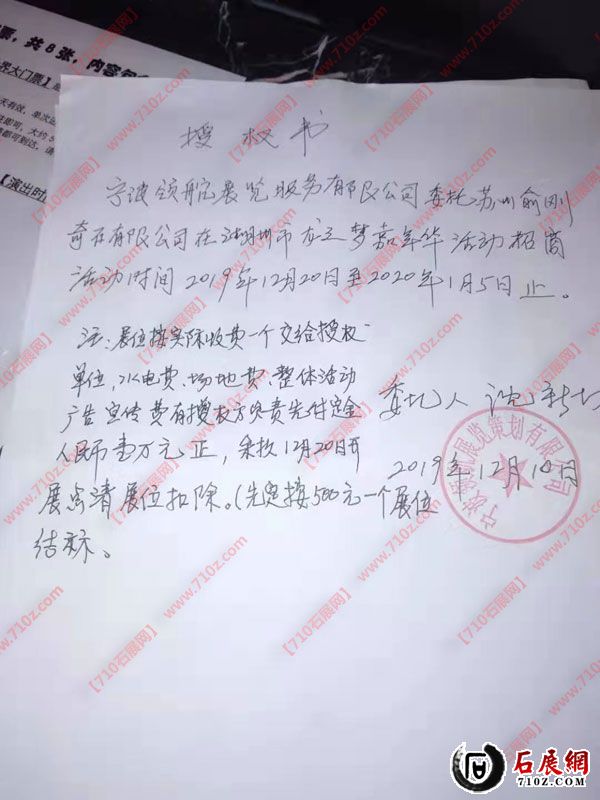 票，共8张，内容包
界大门票】
演出时
授权书
宁波领航展览服务有限公司委托苏州俞刚
奇石有限公司在湖州市龙之梦嘉年华活动招商
活动时间2019年12月20日至2020年1月5日止。
注：展位按实际收费一个交给授权
单位，水电费、场地费、整体活动
广告宣传费有授权方负责先付定金
人民币壹万元正，余款12月20日开
展点清展位扣除。(先定按500元一个展位
结算。
委托人 沈
2019年12月10日
展览策划有限公司
【710石展网】www.710z.com
石展網
710Z.COM